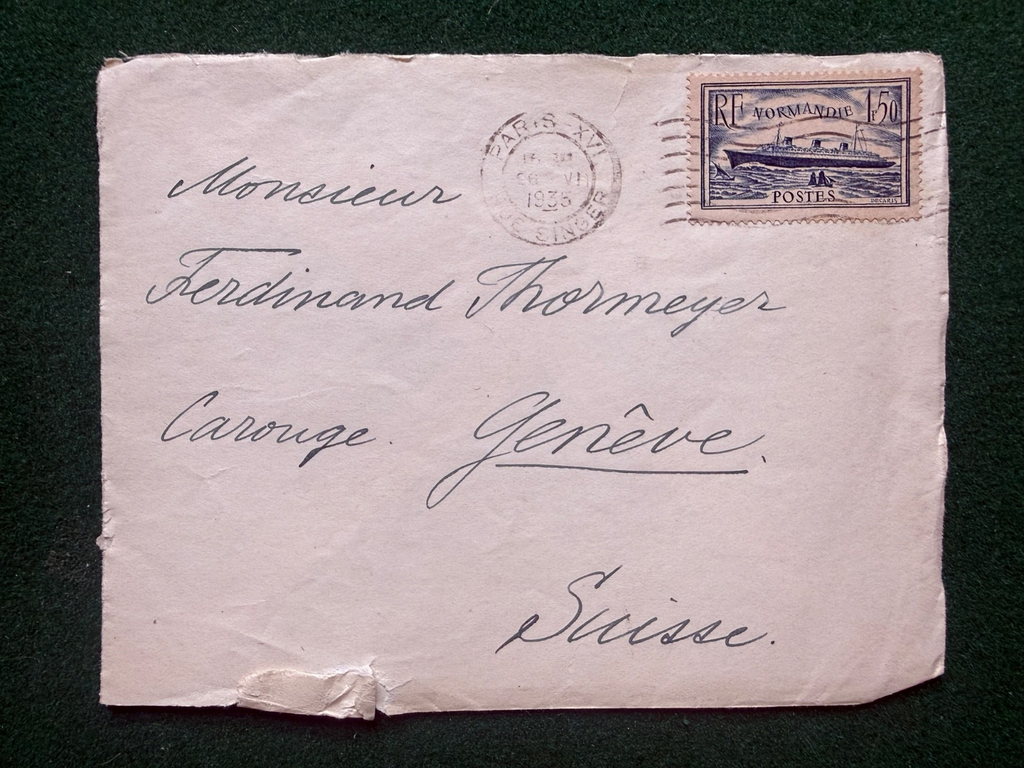 RF NORMANDIE 1F50
POSTES
DECARIS
PARIS XVI
VI
1935
RUE SINGER
Monsieur
Ferdinand Thormeyer
Carouge. Genève.
Suisse.